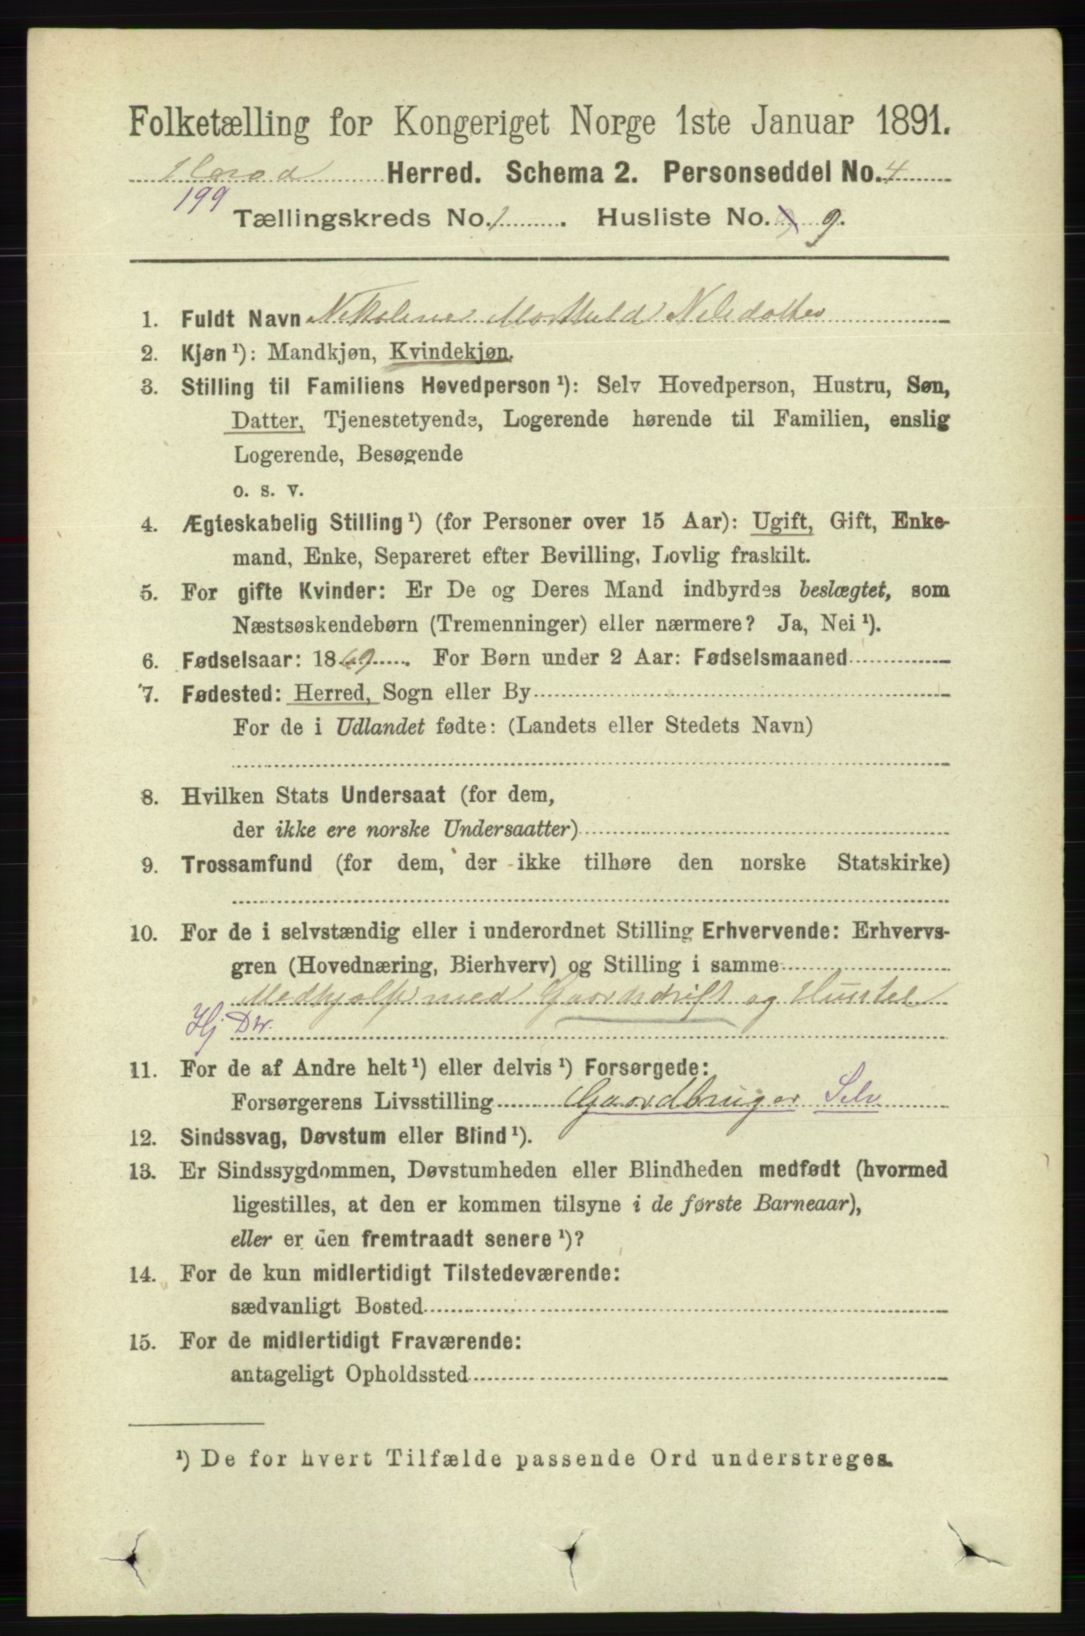 Folketælling for Kongeriget Norge 1ste Januar 1891.
Herred. Schema 2. Personseddel No. 4
199
Tællingskreds No. 1. Husliste No. 9.
1. Fuldt Navn Nikoline Mathild Nilsdatter
2. Kjøn¹): Mandkjøn, Kvindekjøn.
3. Stilling til Familiens Hovedperson¹): Selv Hovedperson, Hustru, Søn,
Datter, Tjenestetyende, Logerende hørende til Familien, enslig
Logerende, Besøgende
o. s. v.
4. Ægteskabelig Stilling¹) (for Personer over 15 Aar): Ugift, Gift, Enke-
mand, Enke, Separeret efter Bevilling, Lovlig fraskilt.
5. For gifte Kvinder: Er De og Deres Mand indbyrdes beslægtet, som
Næstsøskendebørn (Tremenninger) eller nærmere? Ja, Nei¹).
6. Fødselsaar: 1869. For Børn under 2 Aar: Fødselsmaaned
7. Fødested: Herred, Sogn eller By
For de i Udlandet fødte: (Landets eller Stedets Navn)
8. Hvilken Stats Undersaat (for dem,
der ikke ere norske Undersaatter)
9. Trossamfund (for dem, der ikke tilhøre den norske Statskirke)
10. For de i selvstændig eller i underordnet Stilling Erhvervende: Erhvervs-
gren (Hovednæring, Bierhverv) og Stilling i samme
Medhjælp med Gaardsdrift og Husstel
Hj Dtr.
11. For de af Andre helt¹) eller delvis¹) Forsørgede:
Forsørgerens Livsstilling Gaardbruger Selv
12. Sindssvag, Døvstum eller Blind¹).
13. Er Sindssygdommen, Døvstumheden eller Blindheden medfødt (hvormed
ligestilles, at den er kommen tilsyne i de første Barneaar),
eller er den fremtraadt senere¹)?
14. For de kun midlertidigt Tilstedeværende:
sædvanligt Bosted
15. For de midlertidigt Fraværende:
antageligt Opholdssted
¹) De for hvert Tilfælde passende Ord understreges.